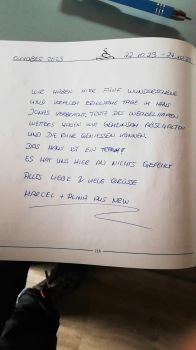 OKTOBER 2023 22.10.23 - 24.10.23
WIR HABEN HIER EINE WUNDERSCHÖNE
UND ERHOLSAME TAGE IM HAUS
JONAS VERBRACHT. TROTZ DES WETTERS HATTEN
WIR GEMEINSAM ABSCHALTEN
UND DIE RUHE GENIESSEN KÖNNEN.
DAS HAUS IST EIN TRAUM
ES HAT UNS HIER AN NICHTS GEFEHLT
ALLES LIEBE & VIELE GRÜSSE
MARCEL + ALINA AUS NRW